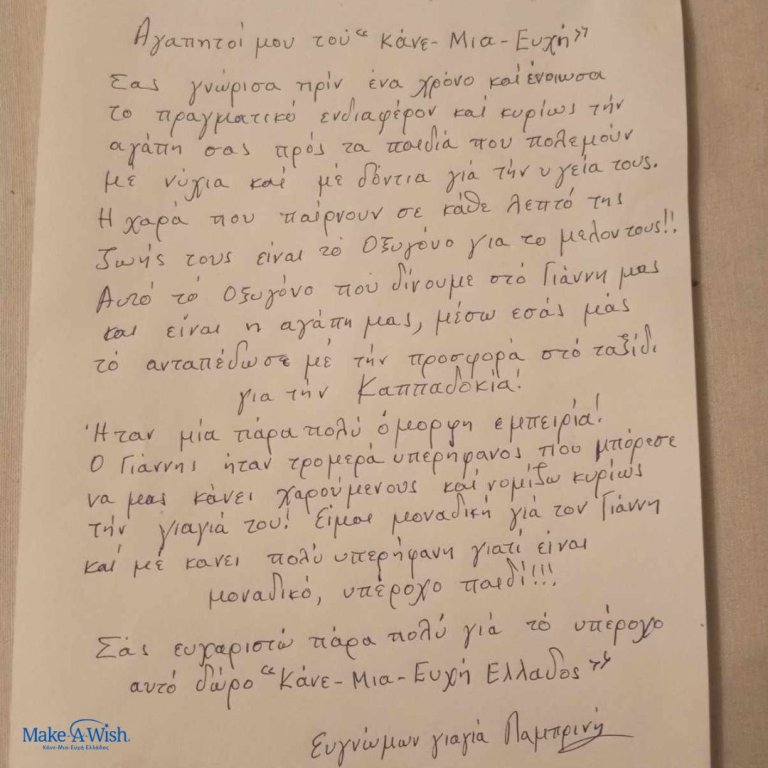 Αγαπητοί μου τού "Κάνε-Μια-Ευχή"
Σας γνώρισα πρίν ένα χρόνο καί ένοιωσα
το πραγματικό ενδιαφέρον καί κυρίως τήν
αγάπη σας πρός τα παιδιά που πολεμούν
μέ νύχια καί μέ δόντια γιά τήν υγεία τους.
Η χαρά που παίρνουν σε κάθε λεπτό της
ζωής τους είναι τό Οξυγόνο για το μελον τους!!
Αυτό τό Οξυγόνο πού δίνουμε στό Γιάννη μας
και είναι η αγάπη μας, μέσω εσάς μάς
τό ανταπέδωσε μέ τήν προσφορά στό ταξίδι
για τήν Καππαδοκία!
Ήταν μία πάρα πολύ όμορφη εμπειρία!
Ο Γιάννης ήταν τρομερά υπερήφανος που μπόρεσε
να μας κάνει χαρούμενους καί νομίζω κυρίως
τήν γιαγιά του! Είμαι μοναδική γιά τον Γιάννη
καί μέ κανει πολύ υπερήφανη γιατί είναι
μοναδικό, υπέροχο παιδί!!!
Σάς ευχαριστώ πάρα πολύ γιά τό υπέροχο
αυτό δώρο "Κάνε-Μια-Ευχή Ελλάδος"
Ευγνώμων γιαγιά Λαμπρινή
Make-A-Wish.
Κάνε-Μια-Ευχή Ελλάδος